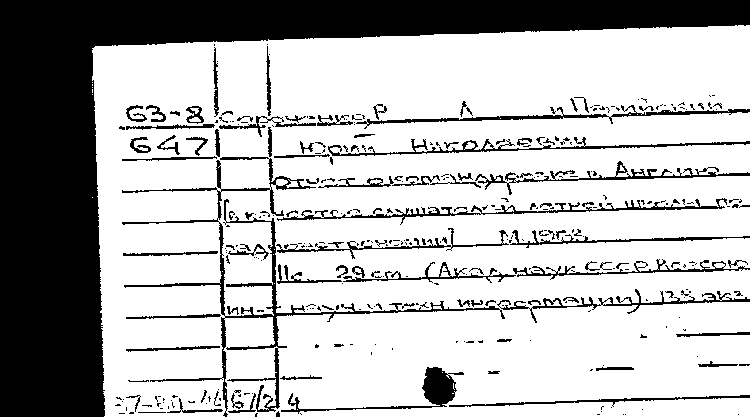 63-8 Сороченко, Р Л и Парийский,
647 Юрий Николаевич
Отчет о командировке в Англию
[в качестве слушателей летней школы по
радиоастрономии] М, 1963.
11с. 29 cm. (Акад. наук СССР. Всесоюз
ин-т науч. и техн. информации). 138 экз
67/2 4